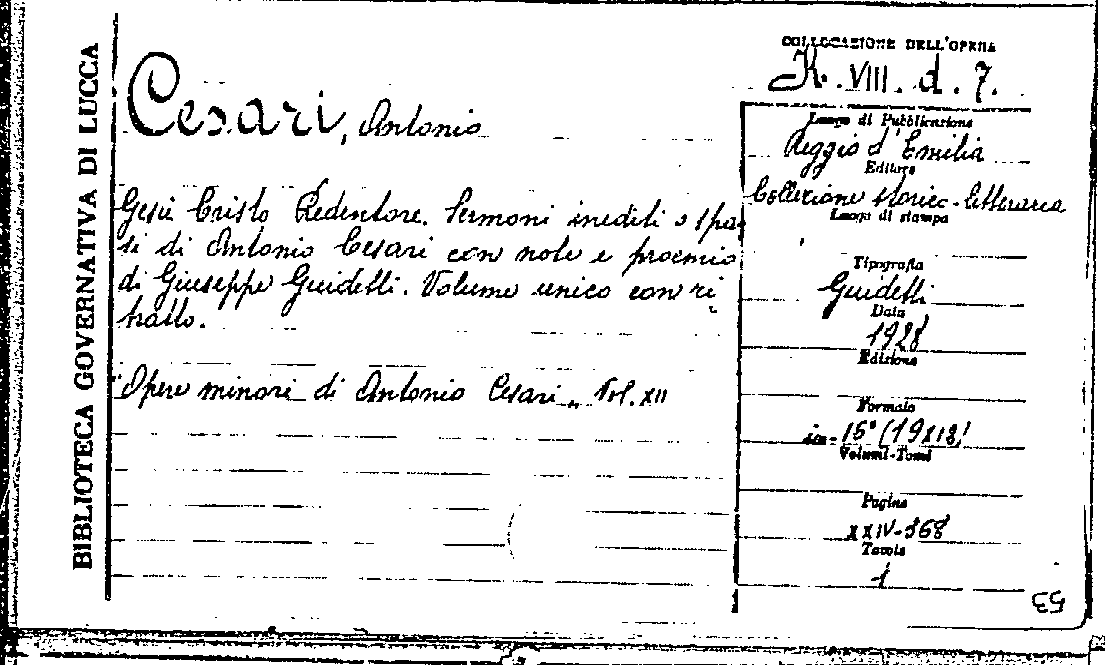 BIBLIOTECA GOVERNATIVA DI LUCCA
Cesari, Antonio
Gesù Cristo Redentore. Sermoni inediti o spar
si di Antonio Cesari con note e proemio
di Giuseppe Guidetti. Volume unico con ri
tratto.
Opere minori di Antonio Cesari „ Vol. XII
COLLOCAZIONE DELL'OPERA
K. VIII. d. 7.
Luogo di Pubblicazione
Reggio d'Emilia
Editore
Collezione storico-letteraria
Luogo di stampa
Tipografia
Guidetti
Data
1928
Edizione
Formato
in-15° (19x12)
Volumi-Tomi
Pagine
XXIV-368
Tavole
1
53